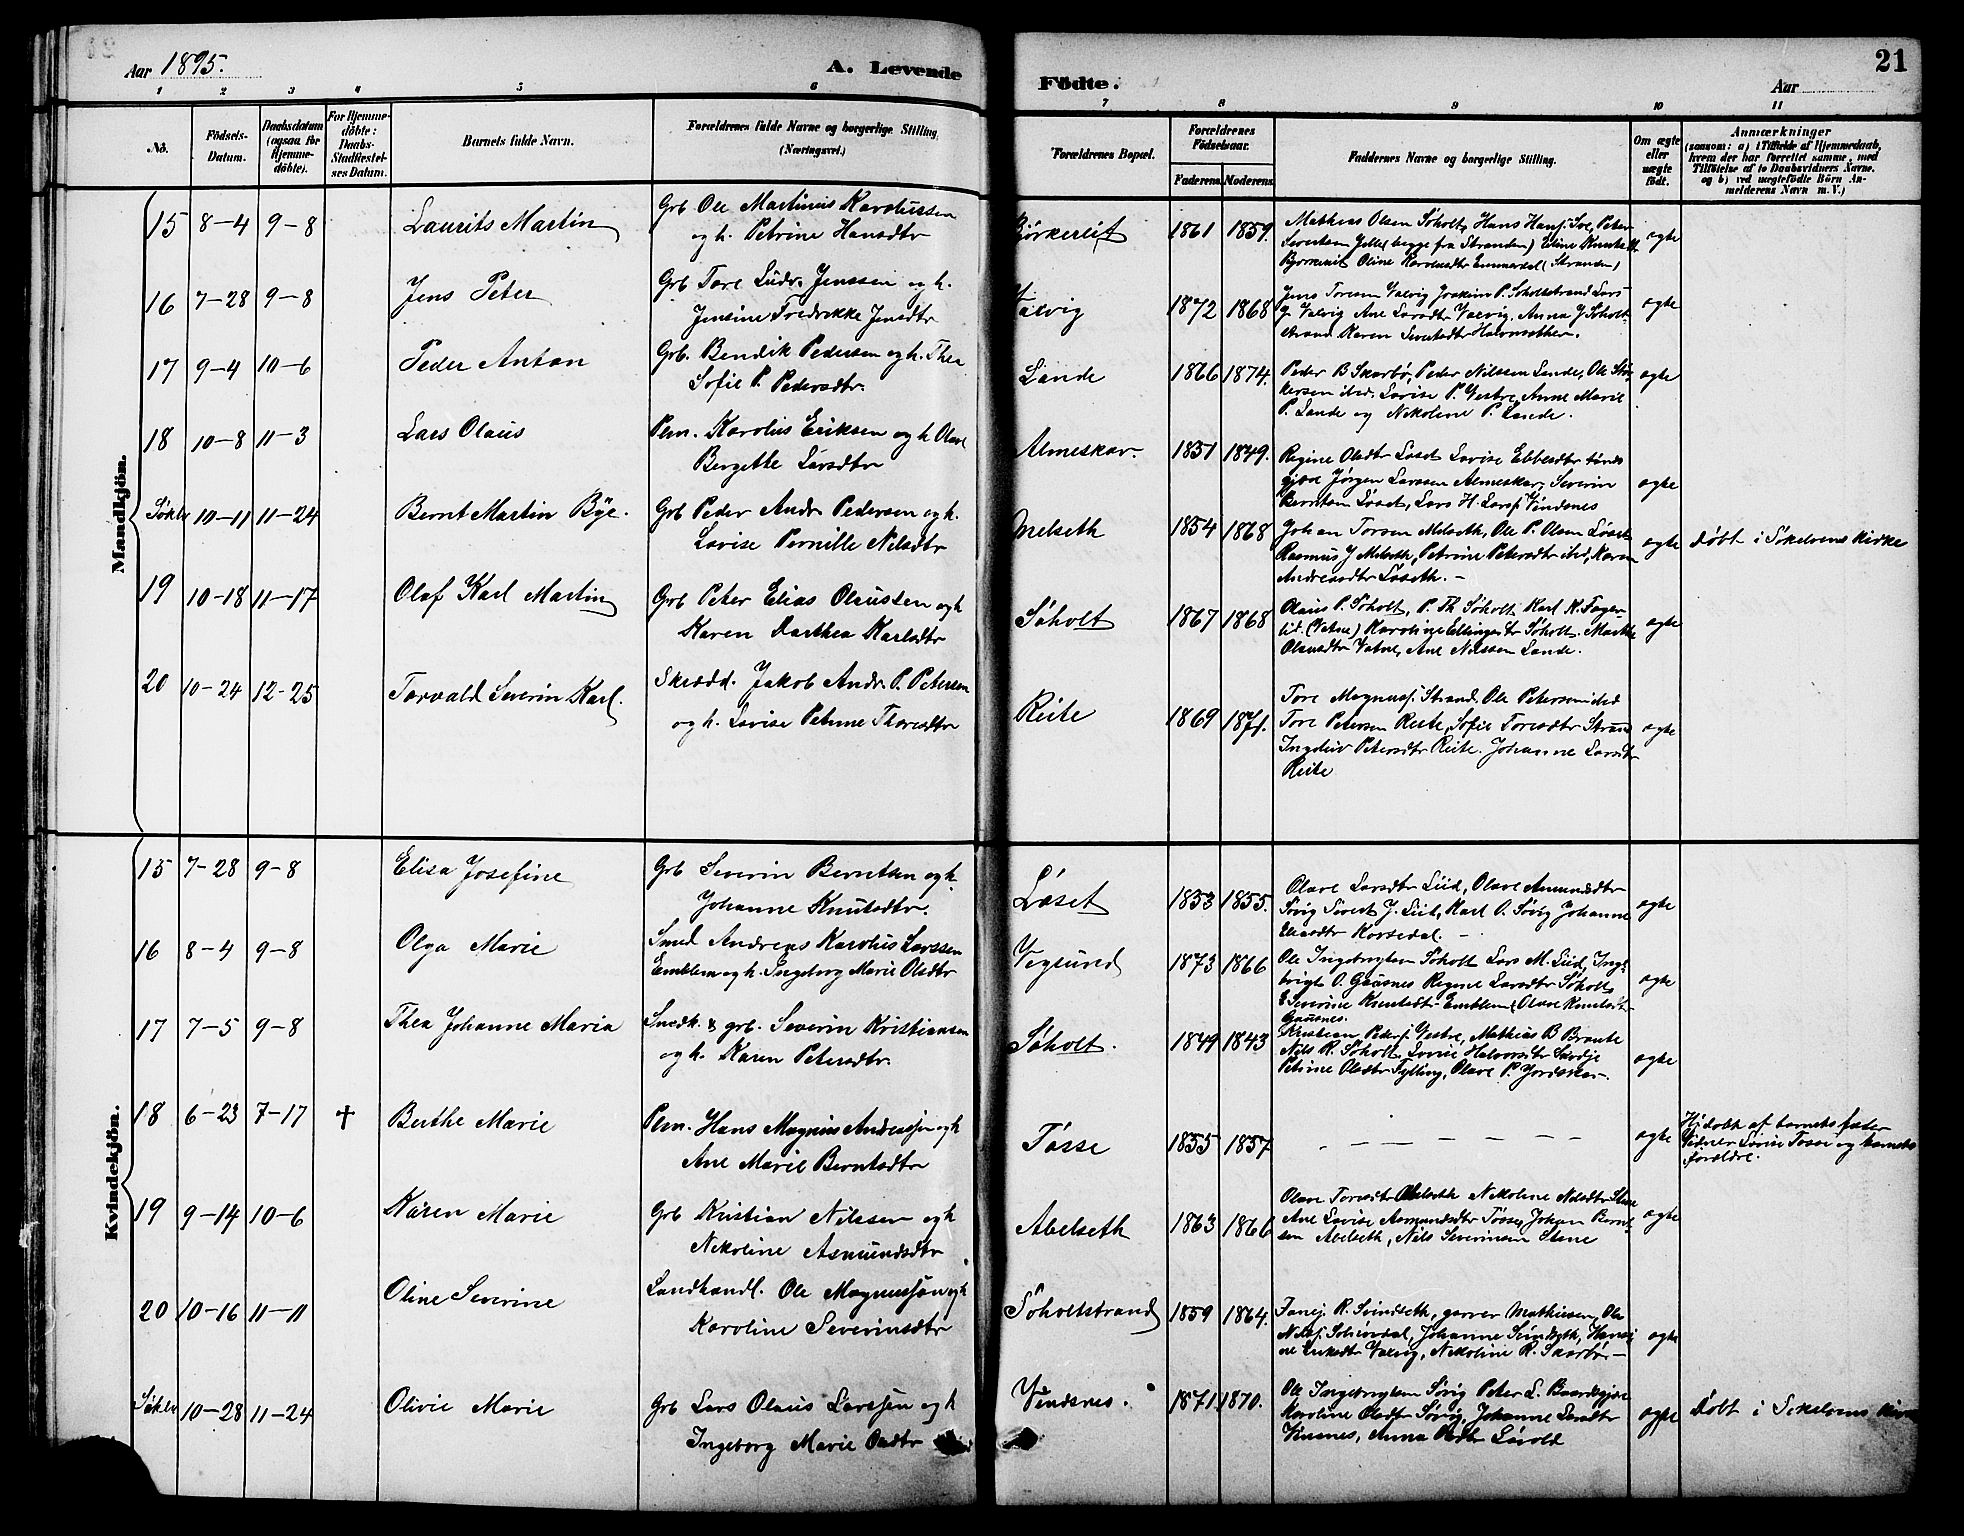 Aar 1895.
A. Levende
Födte.
Aar
21
1 2 3 4 5 6 7 8 9 10 11
No.
Födsels-
Datum.
Daabsdatum
(ogsaa for
Hjemme-
döbte).
For Hjemme-
döbte:
Daabs-
Stadfæstel-
ses Datum.
Barnets fulde Navn.
Forældrenes fulde Navne og borgerlige Stilling.
(Næringsvei.)
Forældrenes Bopæl.
Forældrenes
Födselsaar.
Faderens. Moderens.
Faddernes Navne og borgerlige Stilling.
Om ægte
eller
uægte
födt.
Anmærkninger
(saasom: a) i Tilfælde af Hjemmedaab,
hvem der har forrettet samme, med
Tilföielse af to Daabsvidners Navne,
og b) ved uægtefödte Börn An-
melderens Navn m. V.)
Mandkjön.
15 8-4 9-8 Laurits Martin
Grb Ole Martinus Karolussen
og h. Petrine Hansdtr
1861 1859.
Mathias Olsen Søholt, Hans Hansf. Soe, Peter
begge fra Stranden) Eline
Bjørkereit Oline (Stranden)
ægte
16 7-28 9-8 Jens Peter
Grb Tore Ludv. Jenssen og h.
Jensine Fredrikke Jensdtr
Valvig 1872 1868
Jens Toresen Valvig Joakim P. Søholtstrand Lars
J. Valvig Ane Larsdtr Valvig, Anna J Søholt-
strand Karen
ægte
17 9-4 10-6 Peder Anton
Grb. Bendik Pedersen og h. Thea
Sofie P. Pedersdtr.
Lande 1866 1874.
Peder B Skarbø, Peder Nilssen Lande, Ole
ibid. Lovise P. Vestre, Anne Marie
P. Lande og Nikoline P. Lande.
ægte
18 10-8 11-3 Lars Olaus
Plm. Karolus Eriksen og h Olave
Bergette Larsdtr
Almeskar. 1851 1849.
Regine Olsdtr Løset Lovise Ebbesdtr
Jørgen Larssen Almeskar, Severin
Berntsen Løset, Lars H. Larsf Vindsnes
ægte
Søkelv 10-11 11-24 Bernt Martin Bye.
Grb Peder Andr. Pedersen og h.
Lovise Pernille Nilsdtr
Melseth 1854 1868
Johan Torsen Melseth, Ole P. Olsen Løset
Rasmus J Melseth, Petrine Petersdtr ibid, Karen
Andreasdtr Løseth. -
ægte
døbt i Søkelvens Kirke
19 10-18 11-17 Olaf Karl Martin
Grb Peter Elias Olaussen og h
Karen Darthea Karlsdtr
Søholt 1867 1868
Olaus P. Søholt, P. Th Søholt Karl K. Fager-
lid (Vatne) Karoline Ellingsdtr Søholt. Marthe
Olausdtr Vatne, Ane Nilssen Lande.
ægte
20 10-24 12-25 Torvald Severin Karl.
Skrædd. Jakob Andr. P. Petersen
og h. Lovise Petrine Thoresdtr
Reite 1869 1871.
Tore Magnusf. Strand, Ole Petersen ibid
Tore Petersen Reite, Sofie Toresdtr Strand
Petersdtr Reite. Johanne Larsdtr
Reite
ægte
Kvindekjön.
15 7-28 9-8 Elisa Josefine
Grb Severin Berntsen og h.
Johanne Knutsdtr.
Løset 1853 1855.
Olave Larsdtr Liid, Olave Amundsdtr
Søvig Sivert J. Liit, Karl O. Søvig Johanne
Eliasdtr Korsedal. -
ægte
16 8-4 9-8 Olga Marie
Smed Andreas Karolus Larssen
Emblem og h. Ingeborg Marie Olsdtr
Vegsund 1873 1866
Ole Ingebrigtsen Søholt Lars M. Liid, Inge-
brigt O. Gaasnes Regine Larsdtr Søholt
Severine Knutsdtr Emblem, Olave Knutsdtr
Gaasnes.
ægte
17 7-5 9-8 Thea Johanne Maria
Snedk. & grb. Severin Kristiansen
og h. Karen Petersdtr.
Søholt. 1849 1843
Kristian Pedersf. Vestre, Mathias B Braute
Nils R. Søholt, Lovise Halvorsdtr
Petrine Olsdtr Fylling, Olave P. Jordskar.
ægte
18 6-23 7-17 † Berthe Marie
Plm. Hans Magnus Andreasson og h
Ane Marie Berntsdtr
Tøsse 1855 1857
- - - - - - -
ægte
Hjdøbt af barnets fader
Vidner Lovise Tøsse og barnets
forældre.
19 9-14 10-6 Karen Marie
Grb Kristian Nilssen og h
Nikoline Asmundsdtr
Abelseth 1863 1866
Olave Toresdtr Abelseth Nikoline Nilsdtr Stene
Ane Lovise Asmundsdtr Tøsse, Johan Bernt-
sen Abelseth, Nils Severinsen Stene
ægte
20 10-16 11-11 Oline Severine
Landhandl. Ole Magnussøn og h
Karoline Severinsdtr
Søholtstrand 1859 1864.
R. Svindseth, garver Mathiesen, Ole
Nilsf. Solnørdal, Johanne Svindseth, Hansi-
ne Valvig, Nikoline R. Skarbø -
ægte
Søkelv 10-28 11-24 Olivie Marie
Grb Lars Olaus Larssøn og h
Ingeborg Marie Olsdtr
Vindsnes. 1871 1870.
Ole Ingebrigtsen Søvig Peter L.
Karoline Olsdtr Søvig, Johanne Larsdtr
Vinsnes, Anna
ægte
døbt i Søkelvens Kirke